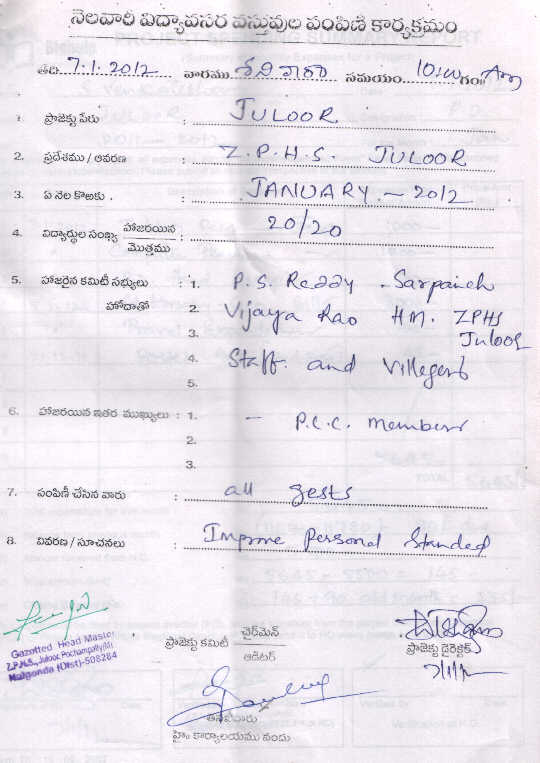 నెలవారీ విద్యావసర వస్తువుల పంపిణీ కార్యక్రమం
తేది 7.1.2012 వారము శనివారం సమయం 10:00 గం॥ Am
1. ప్రాజెక్టు పేరు : JULOOR
2. ప్రదేశము / ఆవరణ : Z.P.H.S. JULOOR
3. ఏ నెల కొఱకు : JANUARY - 2012
4. విద్యార్థుల సంఖ్య హాజరయిన / మొత్తము : 20/20
5. హాజరైన కమిటీ సభ్యులు : 1. P.S. Reddy - Sarpanch
హోదాతో 2. Vijaya Rao HM. ZPHS
3. Juloor
4. Staff. and Villegers
5.
6. హాజరయిన ఇతర ముఖ్యులు : 1. - P.C.C. members
2.
3.
7. పంపిణీ చేసిన వారు : all gests
8. వివరణ / సూచనలు : Improve Personal Standed
Gazotted Head Master
Z.P.H.S., Juloor, Pochampally(M)
Nalgonda (Dist)-508284
ప్రాజెక్టు కమిటీ చైర్‌మెన్ / ఆడిటర్
ప్రాజెక్టు డైరెక్టర్
7/1/12
హైః కార్యాలయము నందు